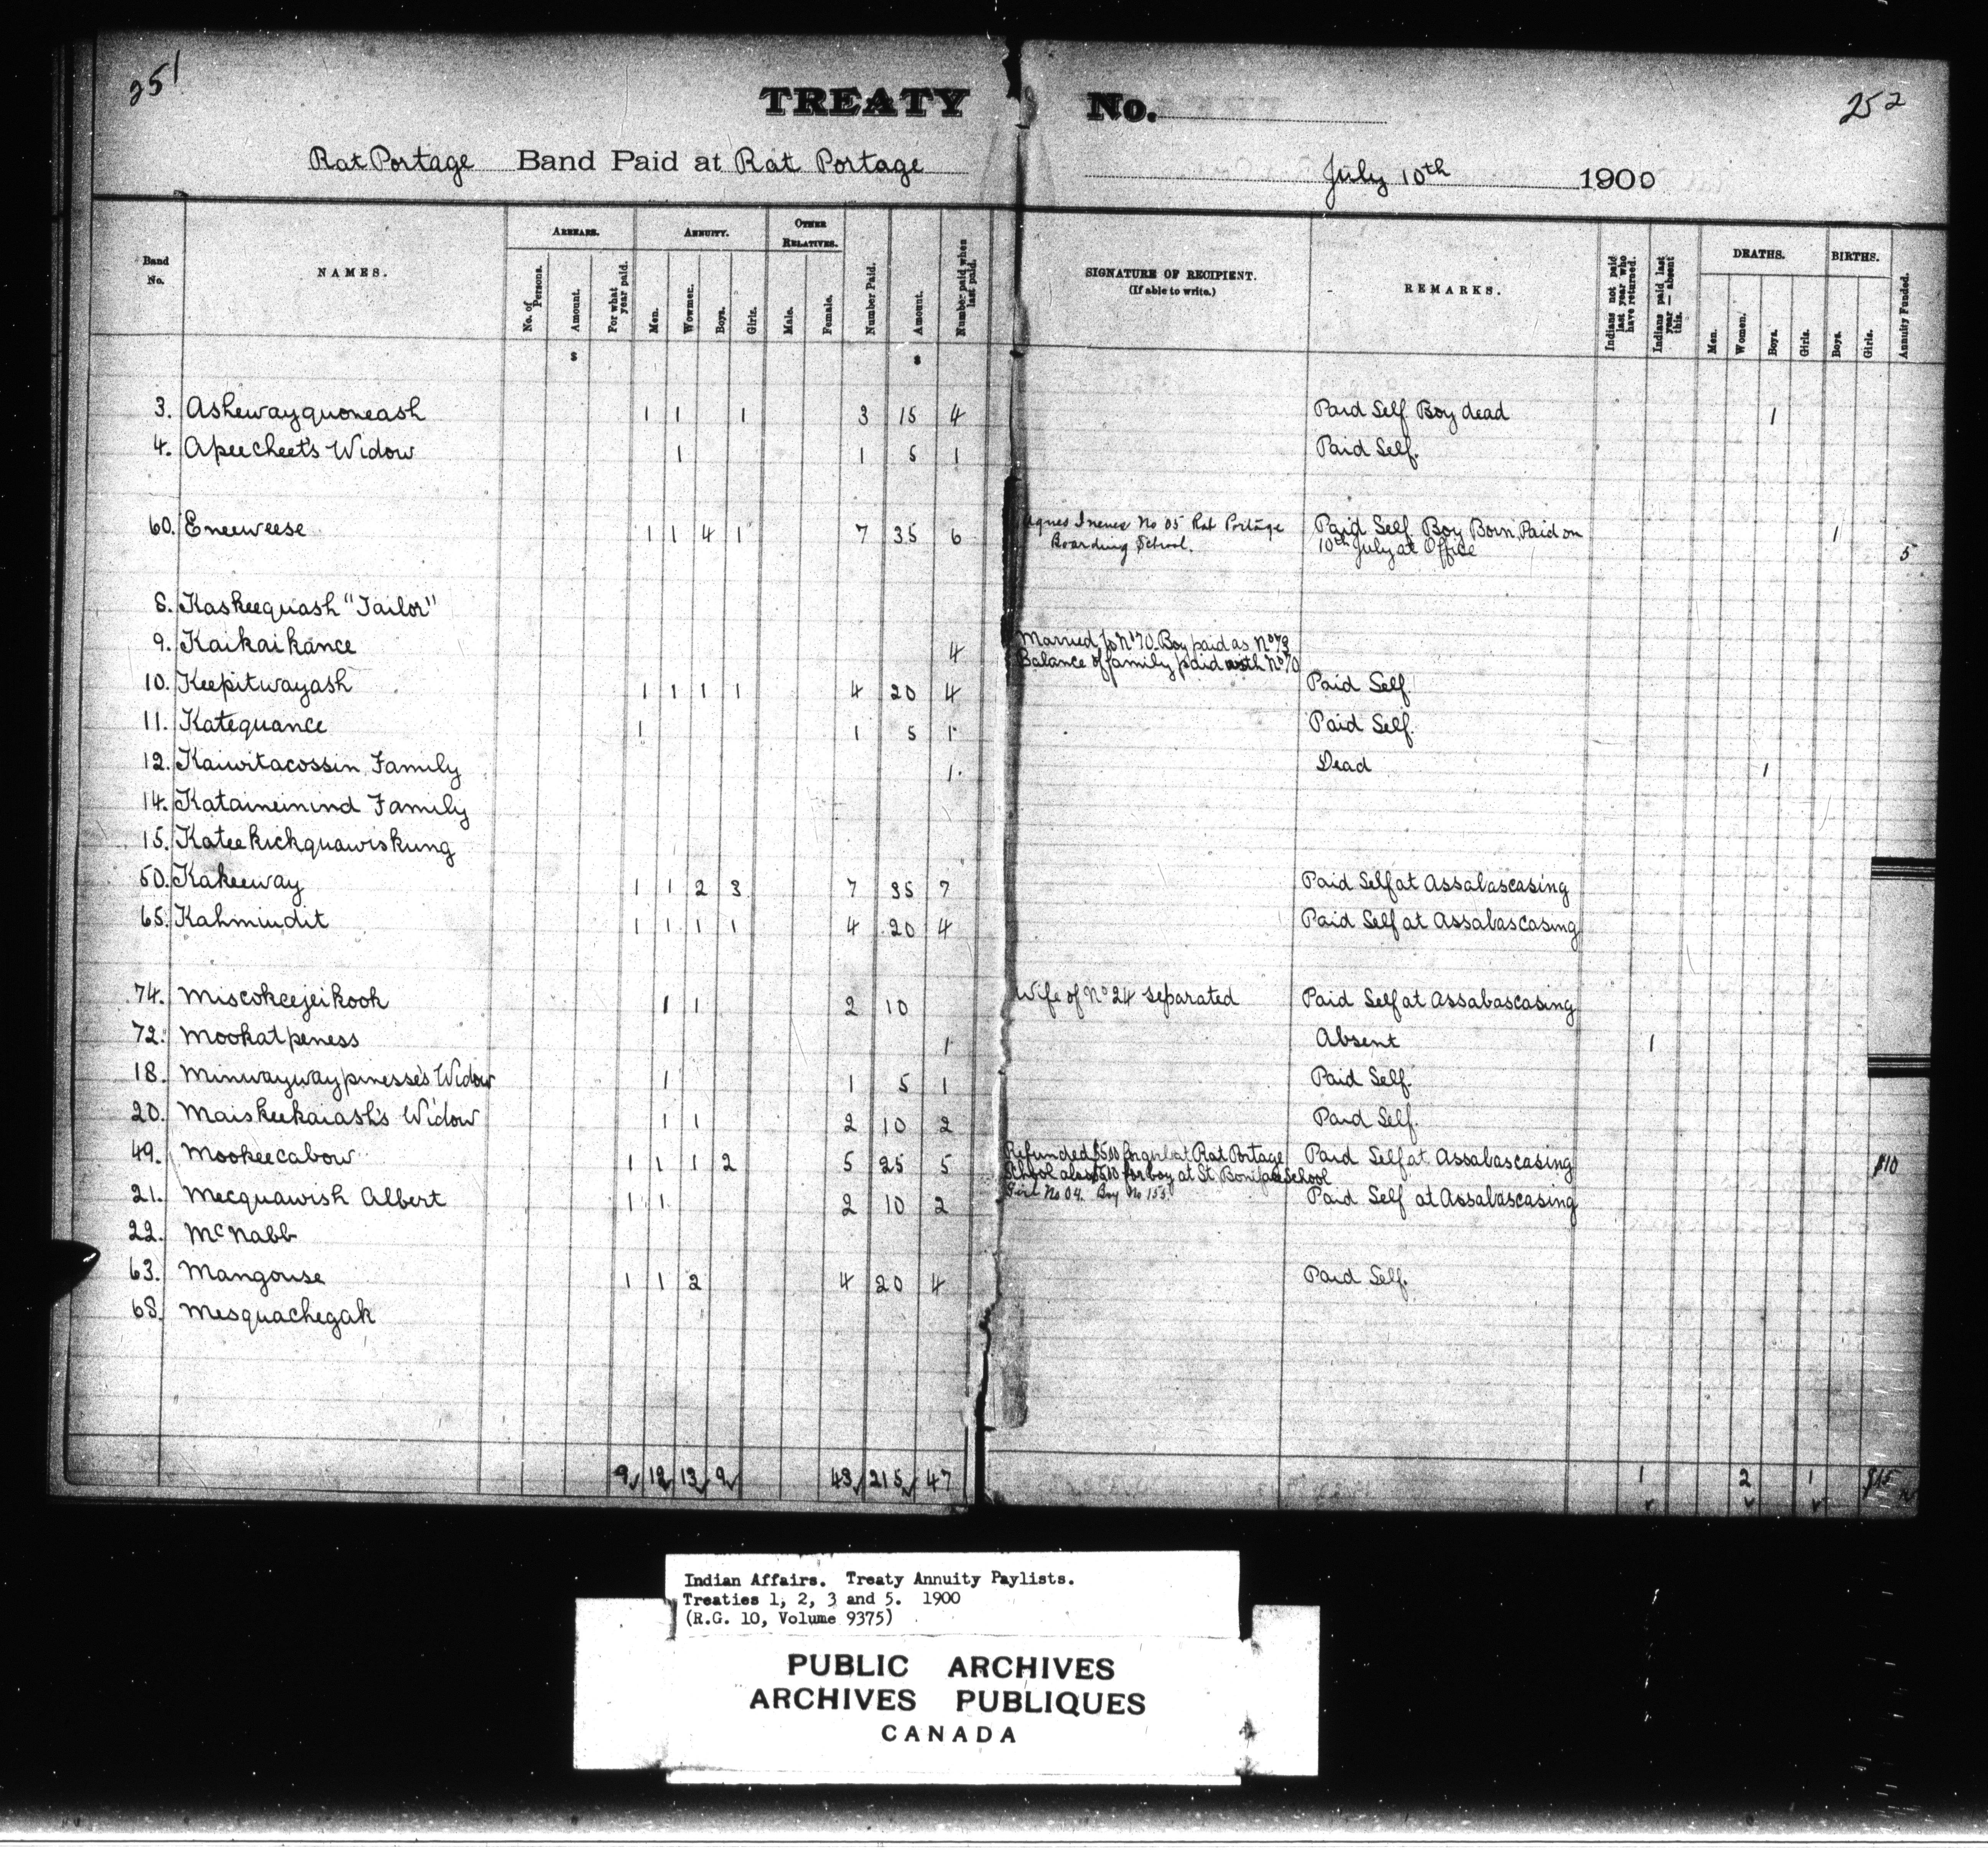 251
TREATY No.
252
Rat Portage Band Paid at Rat Portage
July 10th 1900
Band No.
NAMES.
ARREARS.
No. of Persons.
Amount.
For what year paid.
ANNUITY.
Men.
Women.
Boys.
Girls.
OTHER RELATIVES.
Male.
Female.
Number Paid.
Amount.
Number paid when last paid.
SIGNATURE OF RECIPIENT.
(If able to write.)
REMARKS.
Indians not paid last year who have returned.
Indians paid last year — absent this.
DEATHS.
Men.
Women.
Boys.
Girls.
BIRTHS.
Boys.
Girls.
Annuity Funded.
$ $
3. Ashewayquoneash 1 1 1 3 15 4 Paid Self Boy dead 1
4. Apeecheet's Widow 1 1 5 1 Paid Self.
60. Eneeweese 1 1 4 1 7 35 6 Agnes No 05 Rat Portage Paid Self Boy Born, Paid on 1
Boarding School. 10th July at Office 5
8. Kaskeequash "Tailor"
9. Kaikaikance 4 Married to No 70. Boy paid as No 73
Balance of family paid with No 70
10. Keepitwayash 1 1 1 1 4 20 4 Paid Self
11. Katequance 1 1 5 1 Paid Self.
12. Kaiwitacossin Family 1. Dead 1
14. Kataineinind Family
15. Kateekickquawiskung
50. Kakeeway 1 1 2 3 7 35 7 Paid Self at Assabascasing
65. Kahmindit 1 1 1 1 4 20 4 Paid Self at Assabascasing
74. Miscokeejeikook 1 1 2 10 Wife of No 24 separated Paid Self at Assabascasing
72. Mookatpeness 1 Absent 1
18. Minwaywaypinesse's Widow 1 1 5 1 Paid Self.
20. Maiskeekaiash's Widow 1 1 2 10 2 Paid Self.
49. Mookeecabow 1 1 1 2 5 25 5 Refunded $5.00 for girl at Rat Portage Paid Self at Assabascasing $10
School also $5.00 for boy at St Boniface School
Girl No 04. Boy No 155
21. Mecquawish Albert 1 1 2 10 2 Paid Self at Assabascasing
22. McNabb
63. Mangouse 1 1 2 4 20 4 Paid Self.
68. Mesquachegak
9 12 13 9 43 215 47 1 2 1 $15
Indian Affairs. Treaty Annuity Paylists.
Treaties 1, 2, 3 and 5. 1900
(R.G. 10, Volume 9375)
PUBLIC ARCHIVES
ARCHIVES PUBLIQUES
CANADA